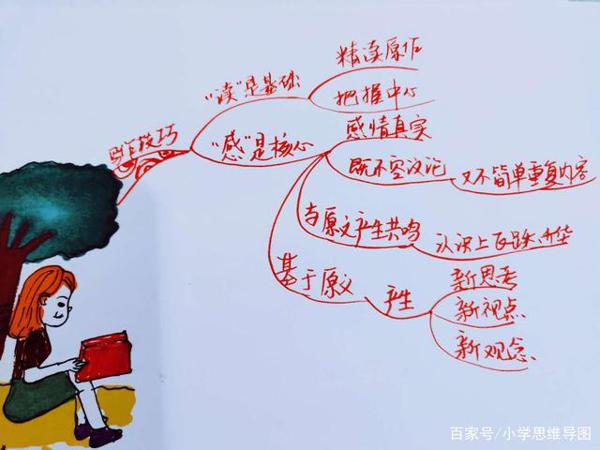 写作技巧
"读"是基础
精读原作
把握中心
"感"是核心
感情真实
既不空议论
又不简单重复内容
与原文产生共鸣
认识上飞跃升华
基于原文
产生
新思考
新视点
新观念
百家号/小学思维导图